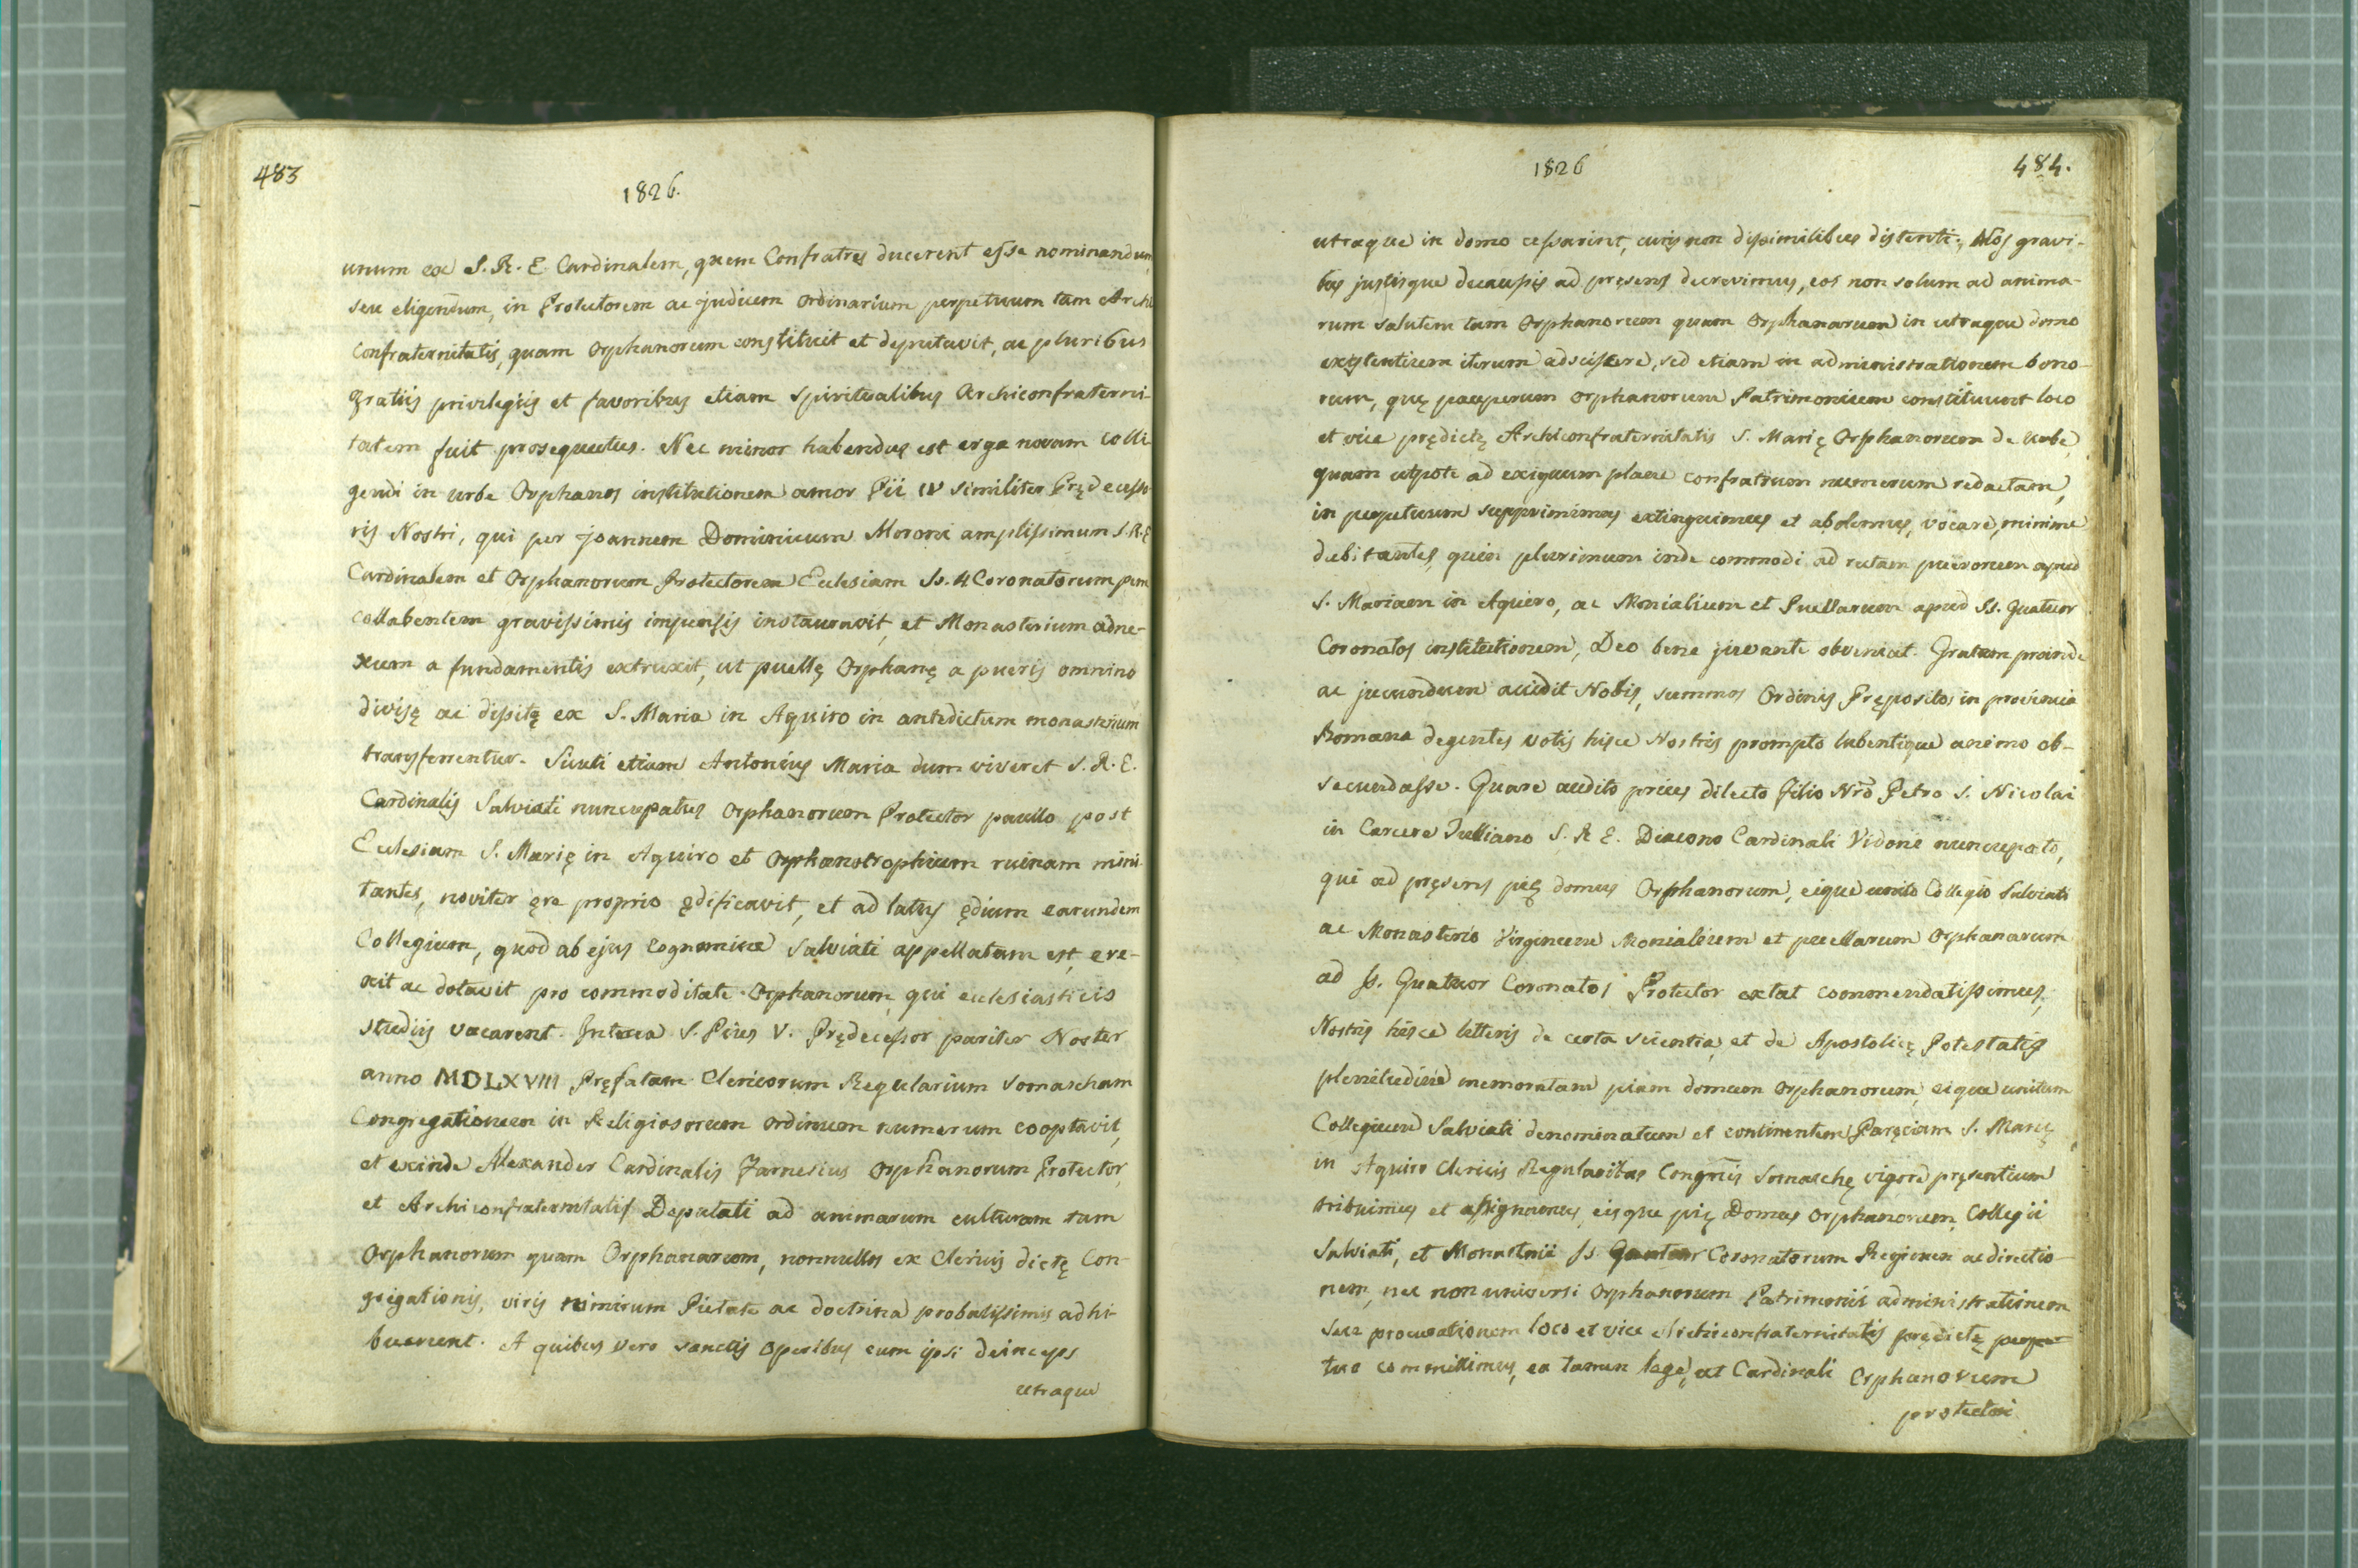 483
1826.
unum ex S. R. E. Cardinalem, quem Confratres ducerent esse nominandum,
seu eligendum, in Protectorem ac judicem ordinarium perpetuum tam Archi
Confraternitatis, quam Orphanorum constituit et deputavit, ac pluribus
gratiis privilegiis et favoribus etiam spiritualibus Archiconfraterni-
tatem fuit prosequutus. Nec minor habendus est erga novam colli
gendi in urbe Orphanos institutionem amor Pii IV similiter Prędecesso
ris Nostri, qui per Joannem Dominicum Moroni amplissimum S.R.E
Cardinalem et Orphanorum Protectorem Ecclesiam Ss. 4 Coronatorum pene
collabentem gravissimis impensis instauravit, et Monasterium adne-
xum a fundamentis extruxit, ut puellę Orphanę a pueris omnino
divisę ac dissitę ex S. Maria in Aquiro in antedictum monasterium
transferrentur. Sicuti etiam Antonius Maria dum viveret S. R. E.
Cardinalis Salviati nuncupatus Orphanorum Protector paullo post
Ecclesiam S. Marię in Aquiro et Orphanotrophium ruinam mini
tantes, noviter ęre proprio ędificavit, et ad latus ędium earundem
Collegium, quod ab ejus cognomine Salviati appellatum est, ere-
xit ac dotavit pro commoditate Orphanorum, qui ecclesiasticis
studiis vacarent. Interea S. Pius V. Prędecessor pariter Noster
anno MDLXVIII Pręfatam Clericorum Regularium Somascham
Congregationem in Religiosorum ordinum numerum cooptavit,
et exinde Alexander Cardinalis Farnesius Orphanorum Protector,
et Archiconfraternitatis Deputati ad animarum culturam tam
Orphanorum quam Orphanarum, nonnullos ex Clericis dictę Con-
gregationis, viris nimirum Pietate ac doctrina probatissimis adhi-
buerunt. A quibus vero sanctis operibus cum ipsi deinceps
utraque
1826
484.
utraque in domo cessarint, curis non dissimilibus distenti; Nos gravi-
bus justisque de causis ad pręsens decrevimus, eos non solum ad anima-
rum salutem tam Orphanorum quam Orphanarum in utraque domo
existentium iterum adsciscere, sed etiam in administrationem bono-
rum, quę pauperum orphanorum Patrimonium constituunt loco
et vice prędictę Archiconfraternitatis S. Marię Orphanorum de Urbe,
quam utpote ad exiguum plane confratrum numerum redactam,
in perpetuum supprimimus extinguimus et abolemus, vocare, minime
dubitantes, quin plurimum inde commodi ad rectam puerorum apud
S. Mariam in Aquiro, ac Monialium et Puellarum apud SS. Quatuor
Coronatos institutionem, Deo bene juvante obveniat. Gratum proinde
ac jucundum accidit Nobis, summos Ordinis Prępositos in provincia
Romana degentes votis hisce Nostris prompto lubentique animo ob-
secundasse. Quare audito prius dilecto filio Nrō Petro S. Nicolai
in Carcere Tulliano S. R E. Diacono Cardinali Vidoni nuncupato,
qui ad pręsens pię domus Orphanorum, eique unito Collegio Salviati
ac Monasterio Virginum Monialium et puellarum Orphanarum
ad Ss. Quatuor Coronatos Protector extat commendatissimus,
Nostris hisce litteris de certa scientia, et de Apostolicę Potestatis
plenitudine memoratam piam domum Orphanorum, eique unitum
Collegium Salviati denominatum et continentem Paręciam S. Marię
in Aquiro Clericis Regularibus Congnīs Somaschę vigore pręsentium
tribuimus et assignamus, eisque pię Domus Orphanorum, Collegii
Salviati, et Monasterii Ss. Quatuor Coronatorum Regimen ac directio-
nem, nec non universi Orphanorum Patrimonii administrationem
seu procurationem loco et vice Archiconfraternitatis prędictę perpe
tuo committimus, ea tamen lege, ut Cardinali Orphanorum
protectori